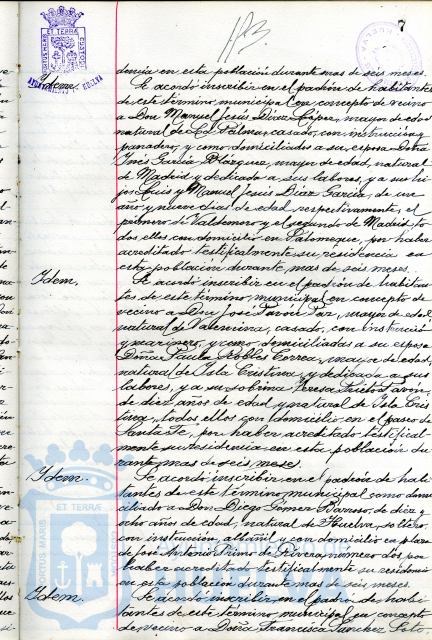 7
PORTUS MARIS ET TERRAE CUSTODIA
AYUNTAMIENTO HUELVA
Idem.
dencia en esta población durante mas de seis meses.
Se acordó inscribir en el padrón de habitantes
de este término municipal con concepto de vecino
a Don Manuel Jesús Díaz López, mayor de edad
natural de La Palma, casado, con instrucción y
panadero, y como domiciliados a su esposa Doña
Inés García Vázquez, mayor de edad, natural
de Madrid y dedicada a sus labores, y a sus hi-
jos Luis y Manuel Jesús Díaz García, de un
año y nueve dias de edad respectivamente, el
primero de Valdemoro y el segundo de Madrid, to
dos ellos con domicilio en Palomeque, por haber
acreditado testificalmente su residencia en
esta población durante mas de seis meses.
Idem.
Se acordó inscribir en el padrón de habitan-
tes de este término municipal en concepto de
vecino a Don José Pavón Paz, mayor de edad,
natural de Valencina, casado, con instrucción
y marinero, y como domiciliadas a su esposa
Doña Paula Robles Correa, mayor de edad,
natural de Isla Cristina, y dedicada a sus
labores, y a su sobrina Teresa Prieto Pavón,
de diez años de edad y natural de Isla Cris
tina, todos ellos con domicilio en el paseo de
Santa Fe, por haber acreditado testifical-
mente su residencia en esta población du-
rante mas de seis meses.
Idem.
Se acordó inscribir en el padrón de habi-
tantes de este término municipal como domi-
ciliado a Don Diego Gómez Barroso, de diez y
ocho años de edad, natural de Huelva, soltero,
con instrucción, albañil y con domicilio en plaza
de José Antonio Primo de Rivera, número dos, por
haber acreditado testificalmente su residencia
en esta población durante mas de seis meses.
Idem.
Se acordó inscribir en el padrón de habi-
tantes de este término municipal en concepto
de vecino a Doña Francisca Sánchez
PORTUS MARIS ET TERRAE